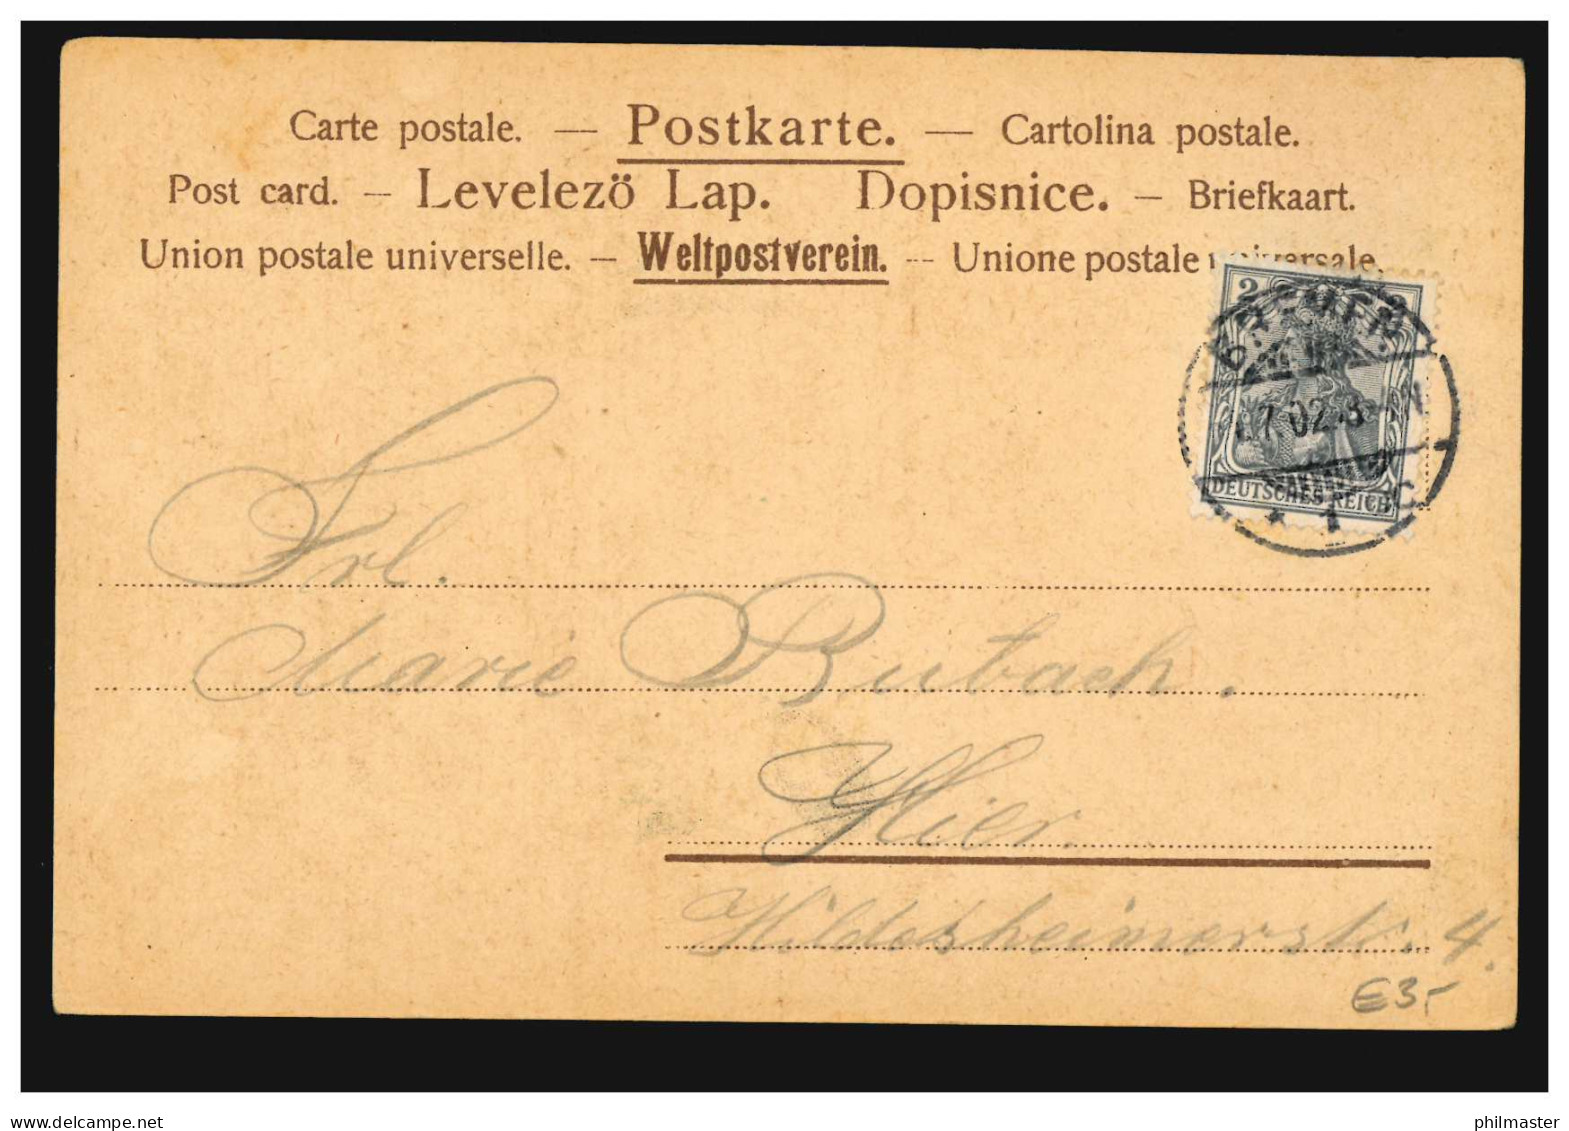 Carte postale. — Postkarte. — Cartolina postale.
Post card. — Levelezö Lap. Dopisnice. — Briefkaart.
Union postale universelle. — Weltpostverein. — Unione postale universale.
2 2
BREMEN
7 02 8
DEUTSCHES REICH
* 1 C
Frl.
Marie Rubach.
Hier.
Hildesheimerstr. 4.
€3,-
delcampe.net
philmaster